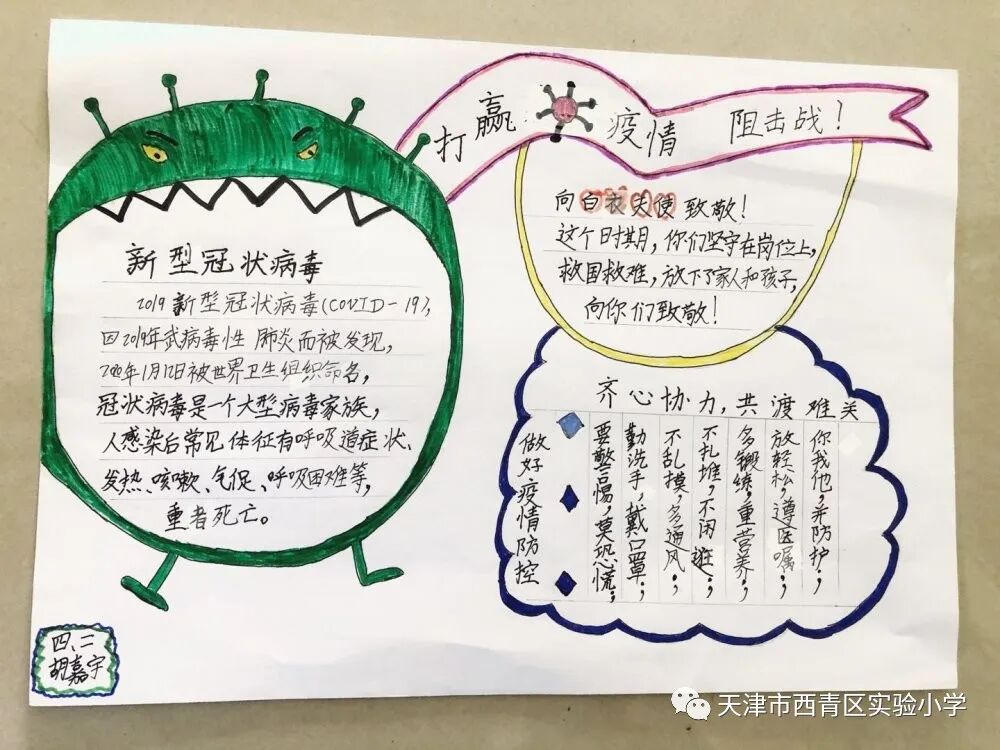 打赢疫情阻击战!
新型冠状病毒
2019新型冠状病毒(COVID-19),
因2019年武病毒性肺炎而被发现,
2020年1月12日被世界卫生组织命名,
冠状病毒是一个大型病毒家族,
人感染后常见体征有呼吸道症状、
发热、咳嗽、气促、呼吸困难等,
重者死亡。
向白衣天使致敬!
这个时期,你们坚守在岗位上,
救国救难,放下了家人和孩子,
向你们致敬!
齐心协力,共渡难关
做好疫情防控
要警惕,莫恐慌;
勤洗手,戴口罩;
不乱摸,多通风;
不扎堆,不闲逛;
多锻练,重营养;
放轻松,遵医嘱;
你我他,并防护;
四、二
胡嘉宇
天津市西青区实验小学